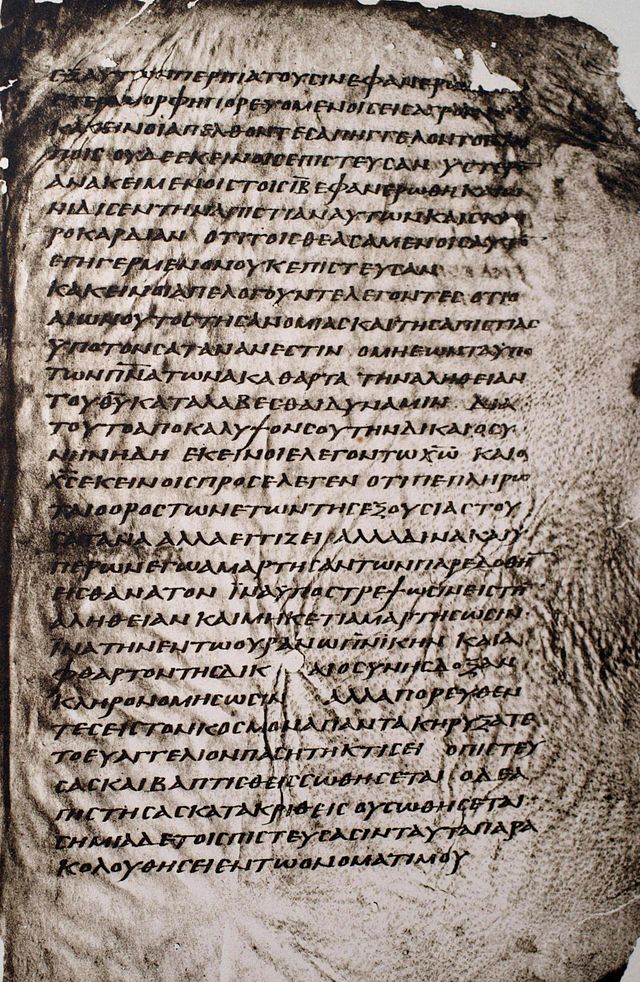 ΕΞΑΥΤΩ ΠΕΡΠΙΑΤΟΥϹΙΝΕΦΑΝΕΡΩ
ΕΤΕΡΑΜΟΡΦΗΠΟΡΕΥΟΜΕΝΟΙϹΕΙϹΑΓΡΟΝ
ΚΑΚΕΙΝΟΙΑΠΕΛΘΟΝΤΕϹΑΠΗΓΓΕΛΟΝΤΟΙϹΛΟΙ
ΠΟΙϹ ΟΥΔΕΕΚΕΙΝΟΙϹΕΠΙϹΤΕΥϹΑΝ ΥϹΤΕΡΟ
ΑΝΑΚΕΙΜΕΝΟΙϹΤΟΙϹΙ̅Β̅ΕΦΑΝΕΡΩΘΗΚΑΙΩ
ΝΙΔΙϹΕΝΤΗΝΑΠΙϹΤΙΑΝΑΥΤΩΝΚΑΙϹΚΛΗ
ΡΟΚΑΡΔΙΑΝ ΟΤΙΤΟΙϹΘΕΑϹΑΜΕΝΟΙϹΑΥΤΟ
ΕΓΗΓΕΡΜΕΝΟΝΟΥΚΕΠΙϹΤΕΥϹΑΝ
ΚΑΚΕΙΝΟΙΑΠΕΛΟΓΟΥΝΤΕΛΕΓΟΝΤΕϹ ΟΤΙΟ
ΑΙΩΝΟΥΤΟϹΤΗϹΑΝΟΜΙΑϹΚΑΙΤΗϹΑΠΙϹΤΙΑϹ
ΥΠΟΤΟΝϹΑΤΑΝΑΝΕϹΤΙΝ ΟΜΗΕΩΝΤΑΥΠΟ
ΤΩΝΠ̅Ν̅ΑΤΩΝΑΚΑΘΑΡΤΑ ΤΗΝΑΛΗΘΕΙΑΝ
ΤΟΥΘ̅Υ̅ΚΑΤΑΛΑΒΕϹΘΑΙΔΥΝΑΜΙΝ ΔΙΑ
ΤΟΥΤΟΑΠΟΚΑΛΥΨΟΝϹΟΥΤΗΝΔΙΚΑΙΟϹΥ
ΝΗΝΗΔΗ ΕΚΕΙΝΟΙΕΛΕΓΟΝΤΩΧ̅Ω̅ ΚΑΙΟ
Χ̅Ϲ̅ΕΚΕΙΝΟΙϹΠΡΟϹΕΛΕΓΕΝ ΟΤΙΠΕΠΛΗΡΩ
ΤΑΙΟΟΡΟϹΤΩΝΕΤΩΝΤΗϹΕΞΟΥϹΙΑϹΤΟΥ
ϹΑΤΑΝΑ ΑΛΛΑΕΓΓΙΖΕΙ ΑΛΛΑΔΙΝΑΚΑΙΥ
ΠΕΡΩΝΕΓΩΑΜΑΡΤΗϹΑΝΤΩΝΠΑΡΕΔΟΘΗ
ΕΙϹΘΑΝΑΤΟΝ ΪΝΑΥΠΟϹΤΡΕΨΩϹΙΝΕΙϹΤΗ
ΑΛΗΘΕΙΑΝ ΚΑΙΜΗΚΕΤΙΑΜΑΡΤΗϹΩϹΙΝ
ΙΝΑΤΗΝΕΝΤΩΟΥΡΑΝΩΠ̅Ν̅ΙΚΗΝ ΚΑΙΑ
ΦΘΑΡΤΟΝΤΗϹΔΙΚ ΑΙΟϹΥΝΗϹΔΟΞΑΝ
ΚΛΗΡΟΝΟΜΗϹΩϹΙΝ ΑΛΛΑΠΟΡΕΥΘΕΝ
ΤΕϹΕΙϹΤΟΝΚΟϹΜΟΝΑΠΑΝΤΑΚΗΡΥΞΑΤΕ
ΤΟΕΥΑΓΓΕΛΙΟΝΠΑϹΗΤΗΚΤΙϹΕΙ ΟΠΙϹΤΕΥ
ϹΑϹΚΑΙΒΑΠΤΙϹΘΕΙϹϹΩΘΗϹΕΤΑΙ ΟΔΕΑ
ΠΙϹΤΗϹΑϹΚΑΤΑΚΡΙΘΕΙϹ ΟΥϹΩΘΗϹΕΤΑΙ
ϹΗΜΙΑΔΕΤΟΙϹΠΙϹΤΕΥϹΑϹΙΝΤΑΥΤΑΠΑΡΑ
ΚΟΛΟΥΘΗϹΕΙΕΝΤΩΟΝΟΜΑΤΙΜΟΥ